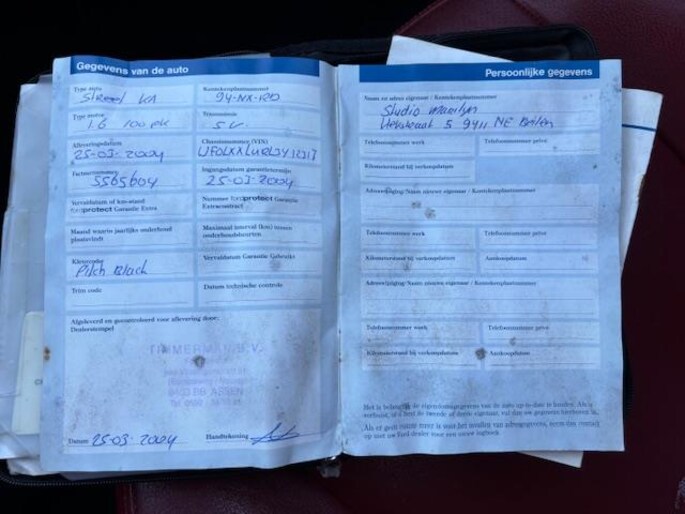 Gegevens van de auto
Type auto
Street KA
Kentekenplaatnummer
94-NX-RD
Type motor
1.6 100 pk
5 v.
Afleveringsdatum
25-03-2004
Chassisnummer (VIN)
Factuurnummer
5565604
Ingangsdatum garantietermijn
25-03-2004
Vervaldatum of km-stand
fordprotect Garantie Extra
Nummer fordprotect Garantie
Extracontract
Maand waarin jaarlijks onderhoud
plaatsvindt
Maximaal interval (km) tussen
onderhoudsbeurten
Kleurcode
Pitch Black
Vervaldatum Garantie Gebruikte
Trim code
Datum technische controle
Afgeleverd en gecontroleerd voor aflevering door:
Dealerstempel
TIMMERMAN B.V.
ASSEN
Datum 25-03-2004
Handtekening
Persoonlijke gegevens
Naam en adres eigenaar / Kentekenplaatnummer
Studio Marilyn
5 9411 NE Beilen
Telefoonnummer werk
Telefoonnummer privé
Kilometerstand bij verkoopdatum
Adreswijziging/Naam nieuwe eigenaar / Kentekenplaatnummer
Telefoonnummer werk
Telefoonnummer privé
Kilometerstand bij verkoopdatum
Aankoopdatum
Adreswijziging/Naam nieuwe eigenaar / Kentekenplaatnummer
Telefoonnummer werk
Telefoonnummer privé
Kilometerstand bij verkoopdatum
Aankoopdatum
Het is belangrijk de eigendomsgegevens van de auto up-to-date te houden. Als u
verhuist, of u bent de tweede of derde eigenaar, vul dan uw gegevens hierboven in.
Als er geen ruimte meer is voor het invullen van adresgegevens, neem dan contact
op met uw Ford-dealer voor een nieuw logboek.